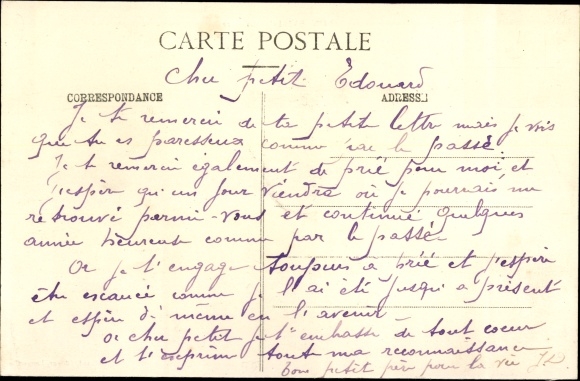 CARTE POSTALE
Cher petit Edouard
CORRESPONDANCE
ADRESSE
Je te remerci de ta petite lettre mais je vois
que tu es paresseux comme par le passé.
Je te remerci également de prié pour moi et
j'espère qu'un jour viendra où je pourrais me
retrouvé parmi-vous et continué quelques
année heureuse comme par le passé.
Or je t'engage toujours a prié et j'espère
être exaucé comme je l'ai été jusqu'a présent
et espère de même en l'avenir
Or cher petit je t'embrasse de tout coeur
et t'exprime toute ma reconnaissance
bon petit père pour la vie